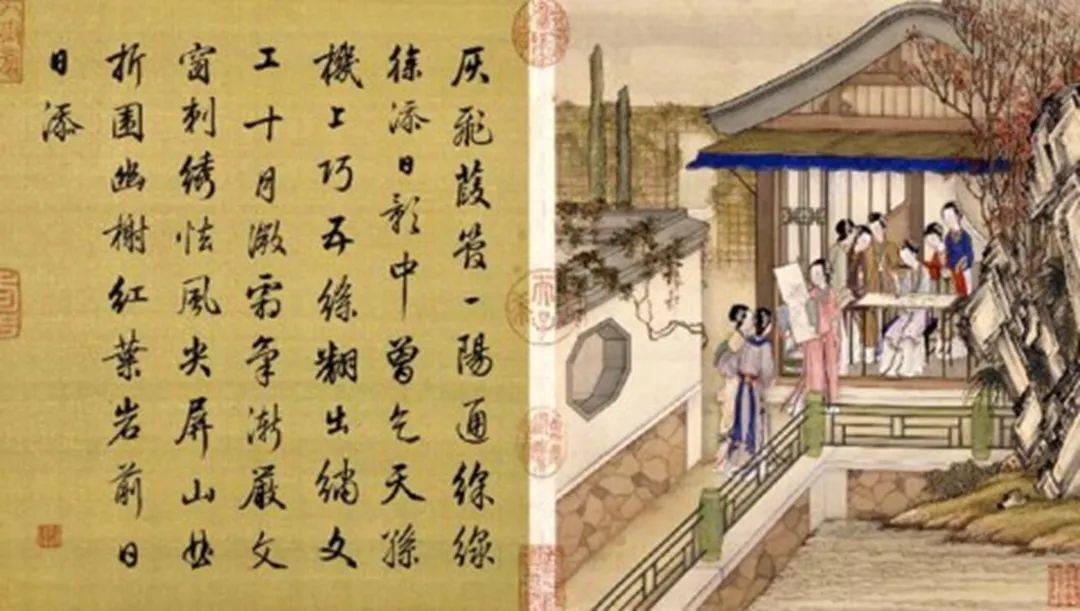 灰飛葭管一陽通綵線
徐添日影中曾乞天孫
機上巧五絲翻出繡文
工十月微霜氣漸嚴文
窗刺綉怯風尖屏山曲
折圍幽榭紅葉岩前日
日添